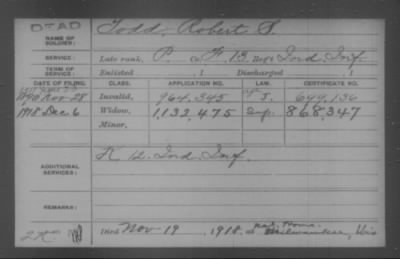 DEAD
NAME OF SOLDIER: Todd, Robert S.
SERVICE: Late rank, P. Co. F, 13 Reg't Ind Inf.
TERM OF SERVICE: Enlisted , 1 Discharged , 1
DATE OF FILING. CLASS. APPLICATION NO. LAW. CERTIFICATE NO.
1890 Nov-28 Invalid, 964,345 J. 649,136
1918 Dec 6 Widow, 1,133,475 868,347
Minor,
ADDITIONAL SERVICES: K 12. Ind. Inf.
REMARKS:
Nat. Home
Died Nov-19, 1918, at Milwaukee, Wis